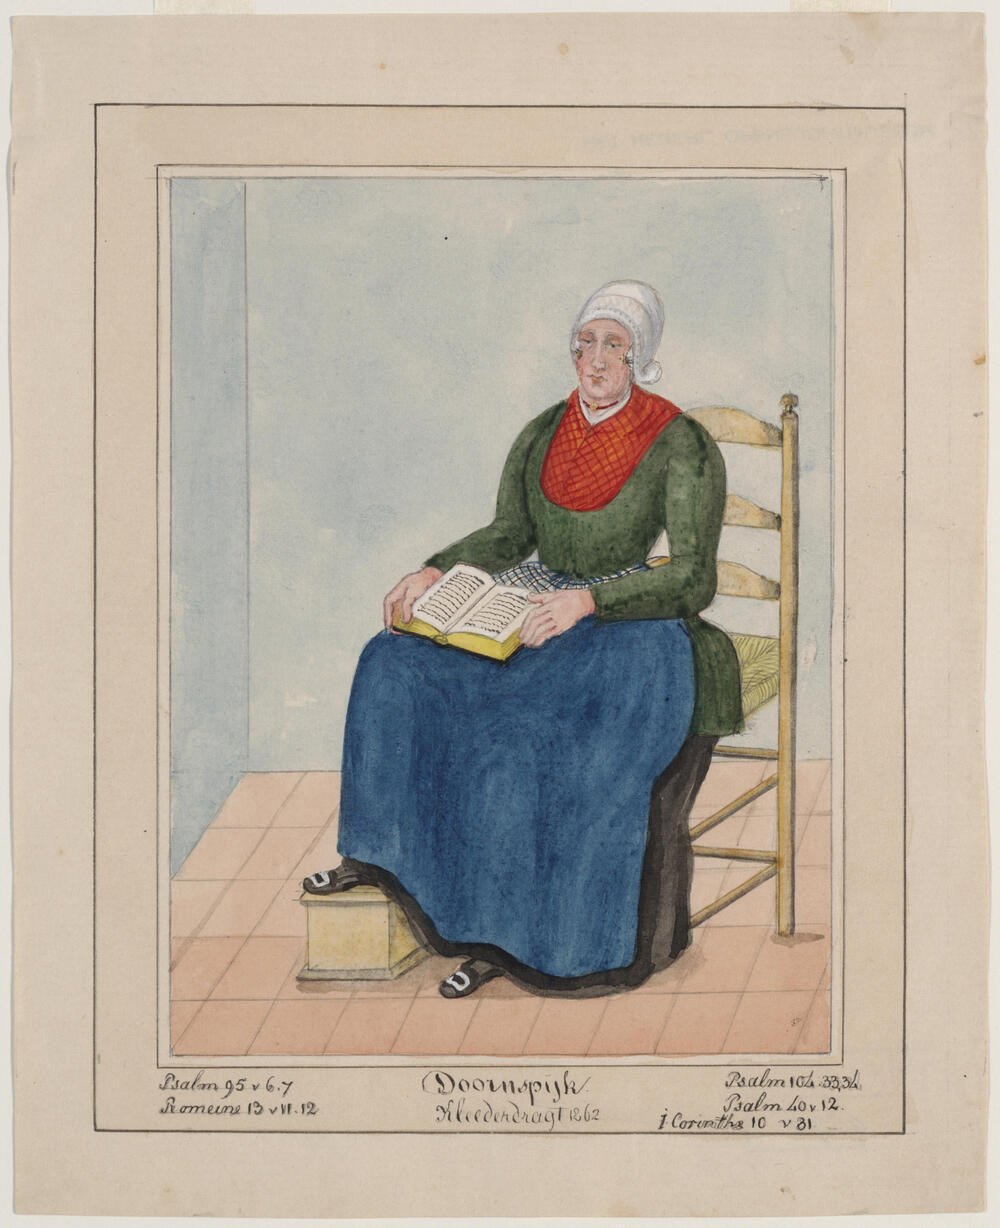 Psalm 95 v 6.7
Romeine 13 v 11.12
Doornspijk.
Kleederdragt 1862
Psalm 104.33,34,
Psalm 40 v 12.
1 Corinths 10 v 31